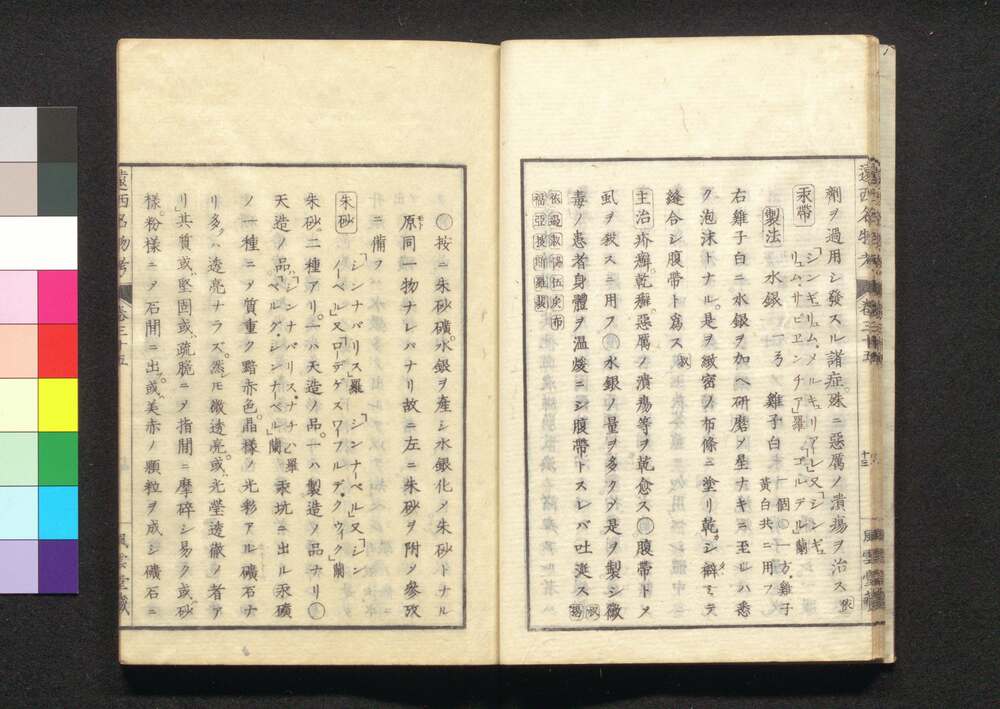 劑ヲ過用シ發スル諸症。殊ニ惡厲ノ潰瘍ヲ治ス
汞帶 「シンギュリュム・メルキュリアーレ」又「シンギュ
リュム・サピエンチア」羅 「ゴルデル」蘭
製法 水銀 一弓 雞子白 一個 ○一方雞子
黃白共ニ用フ
右雞子白ニ水銀ヲ加ヘ研磨シ星ナキニ至ルハ悉
ク泡沫トナル。是ヲ緻密ノ布條ニ塗リ乾シ辮ミテ
縫合シ腹帶ト爲ス
主治 疥癬。乾癬。惡厲ノ潰瘍等ヲ乾愈ス○腹帶トメ
虱ヲ殺スニ用フ○水銀ノ量ヲ多クメ是ヲ製シ黴
毒ノ患者身體ヲ溫煖ニシ腹帶トスレバ吐涎ス
○按ニ朱砂礦。水銀ヲ産シ水銀化メ朱砂トナル
原同一物ナレバナリ故ニ左ニ朱砂ヲ附メ參攷
ニ備フ
朱砂 「シンナバリス」羅 「シンナーベル」又「シン
ノーベル」又「ローデゲスワフルデ・クウィク」蘭
朱砂。二種アリ。一ハ天造ノ品。一ハ製造ノ品ナリ○
天造ノ品。「シンナバリス・ナチハ」羅
「ベルグ・シンナーベル」蘭 汞坑ニ出ル汞礦
ノ一種ニメ質重ク黯赤色。晶樣ノ光彩アル礦石ナ
リ多クハ透亮ナラズ。然レモ微透亮。或ハ光瑩透徹ノ者ア
リ」其質或ハ堅固或ハ疏脆ニメ指間ニ摩碎シ易ク或ハ砂
樣。粉樣ニメ石間ニ出。或ハ美赤ノ顆粒ヲ成シ礦石ニ
遠西名物考 卷三十五 風雲堂藏